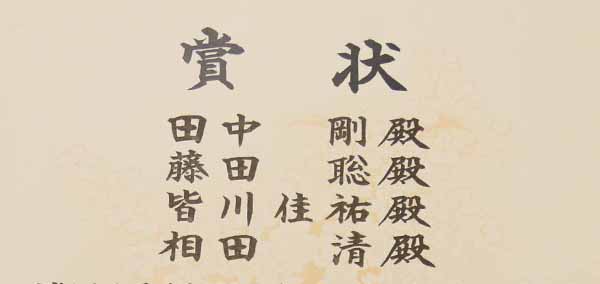 賞状
田中 剛殿
藤田 聡殿
皆川佳祐殿
相田 清殿